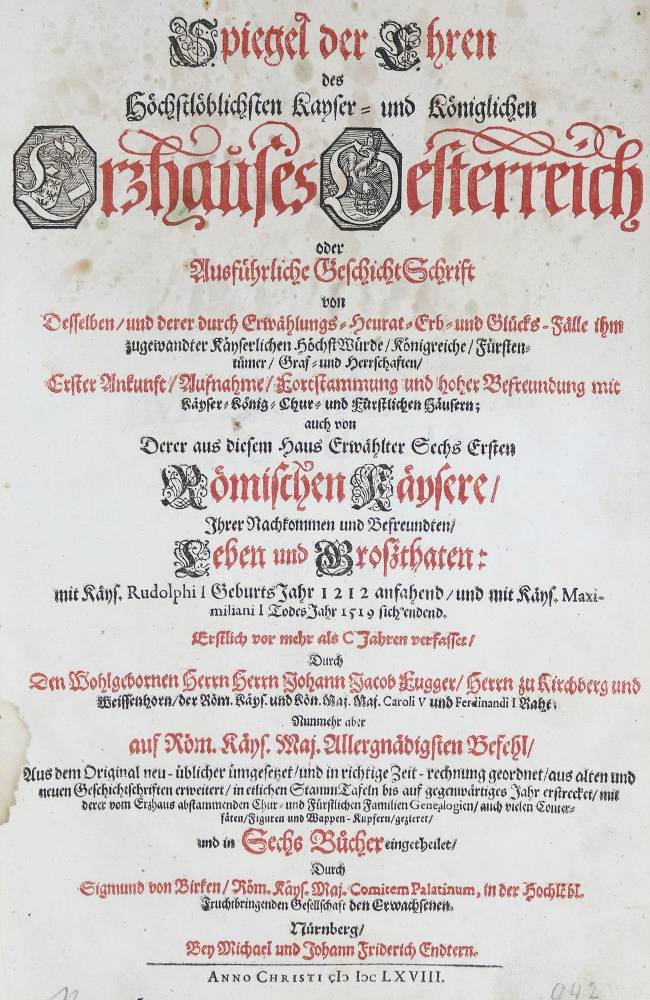 Spiegel der Ehren
des
Höchstlöblichsten Kayser- und Königlichen
Erzhauses Oesterreich
oder
Ausführliche GeschichtSchrift
von
Desselben/und derer durch Erwählungs-Heurat-Erb-und Glücks-Fälle ihm
zugewandter Käyserlichen HöchstWürde/Königreiche/Fürsten-
tümer/Graf-und Herrschaften/
Erster Ankunft/Aufnahme/Fortstammung und hoher Befreundung mit
Käyser-König-Chur-und Fürstlichen Häusern;
auch von
Derer aus diesem Haus Erwählter Sechs Ersten
Römischen Käysere/
Ihrer Nachkommen und Befreundten/
Leben und Großthaten:
mit Käys. Rudolphi I GeburtsJahr 1212 anfahend/und mit Käys. Maxi-
miliani I TodesJahr 1519 sich endend.
Erstlich vor mehr als C Jahren verfasset/
Durch
Den Wohlgebornen Herrn Herrn Johann Jacob Fugger/Herrn zu Kirchberg und
Weissenhorn/der Röm. Käys. und Kön. Maj. Maj. Caroli V und Ferdinandi I Raht;
Nunmehr aber
auf Röm. Käys. Maj. Allergnädigsten Befehl/
Aus dem Original neu-üblicher ümgesetzet/und in richtige Zeit-rechnung geordnet/aus alten und
neuen Geschichtschriften erweitert/in etlichen StammTafeln bis auf gegenwärtiges Jahr erstrecket/mit
derer vom Erzhaus abstammenden Chur-und Fürstlichen Familien Genealogien/auch vielen Conter-
fäten/Figuren und Wappen-Kupfern/gezieret/
und in Sechs Bücher eingetheilet/
Durch
Sigmund von Birken/Röm. Käys. Maj. Comitem Palatinum, in der Hochlöbl.
Fruchtbringenden Gesellschaft den Erwachsenen.
Nürnberg/
Bey Michael und Johann Friderich Endtern.
ANNO CHRISTI cIↄ Iↄc LXVIII.
942